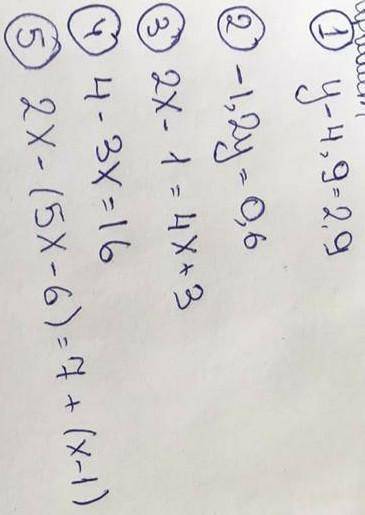 ① y-4,9=2,9
② -1,2y=0,6
③ 2x-1=4x+3
④ 4-3x=16
⑤ 2x-(5x-6)=7+(x-1)